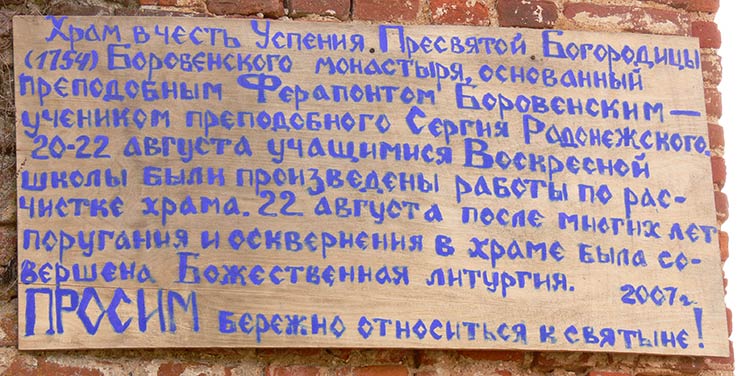 Храм в честь Успения Пресвятой Богородицы
(1754) Боровенского монастыря, основанный
преподобным Ферапонтом Боровенским —
учеником преподобного Сергия Радонежского.
20-22 августа учащимися Воскресной
школы были произведены работы по рас-
чистке храма. 22 августа после многих лет
поругания и осквернения в храме была со-
вершена Божественная литургия. 2007 г.
ПРОСИМ бережно относиться к святыне!